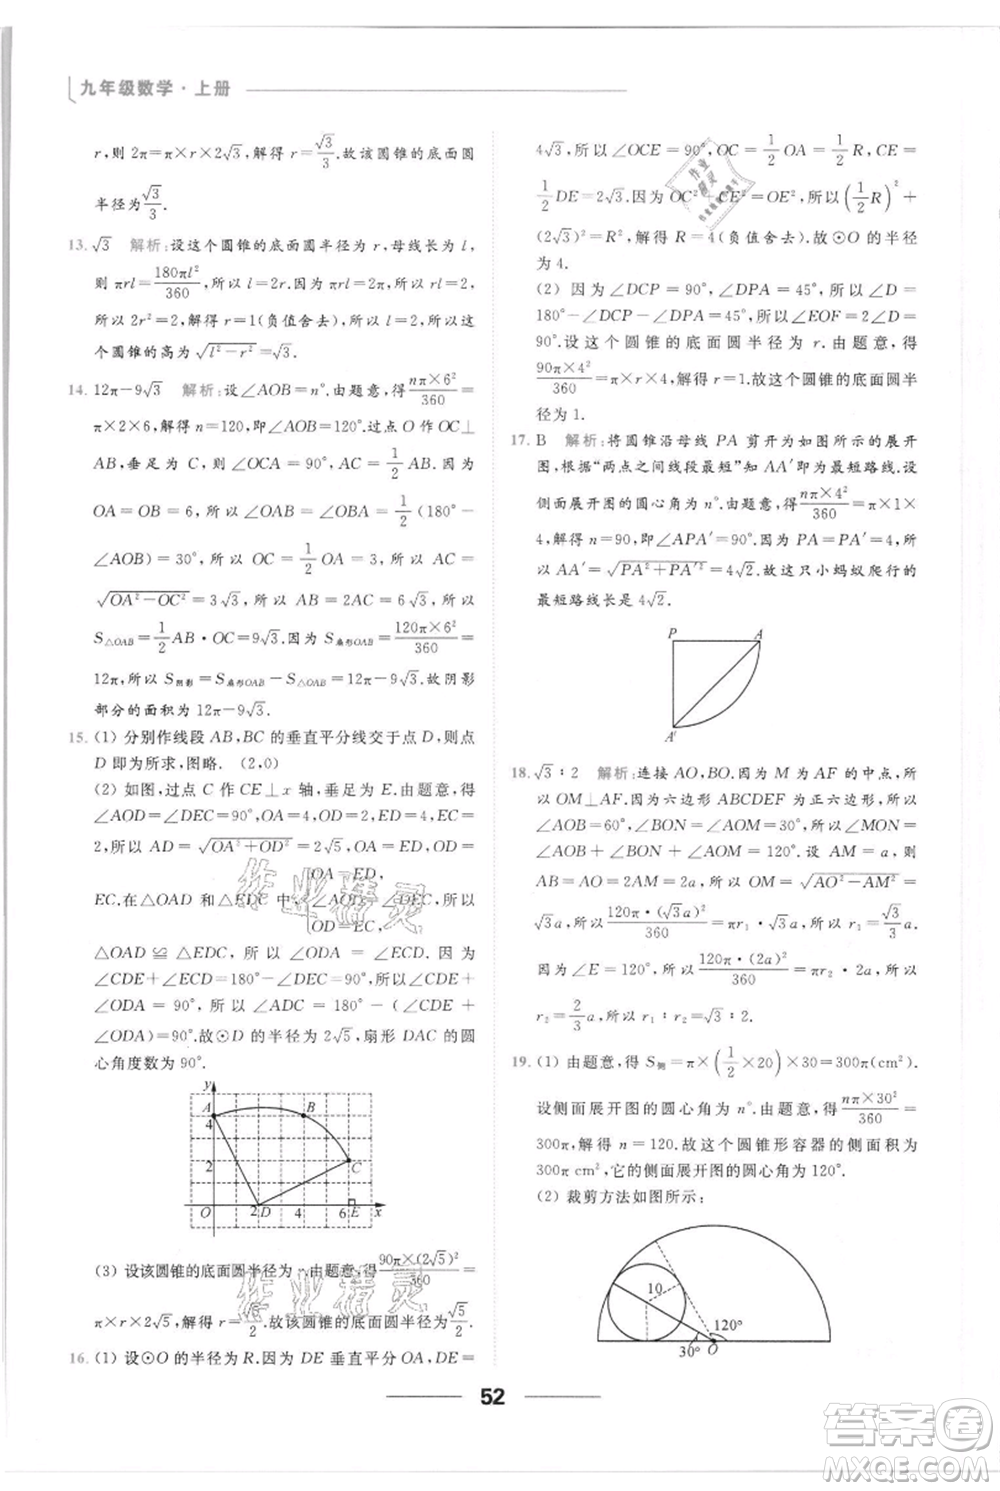 九年级数学·上册
r,则 2π=π×r×2√3,解得 r=√3/3.故该圆锥的底面圆
半径为√3/3.
13. √3 解析:设这个圆锥的底面圆半径为 r,母线长为 l,
则 πrl=180πl²/360,所以 l=2r.因为 πrl=2π,所以 rl=2,
所以 2r²=2,解得 r=1(负值舍去),所以 l=2,所以这
个圆锥的高为√(l²-r²)=√3.
14. 12π-9√3 解析:设∠AOB=n°.由题意,得nπ×6²/360=
π×2×6,解得 n=120,即∠AOB=120°.过点 O 作OC⊥
AB,垂足为 C,所以∠OCA=90°,AC=1/2AB.因为
OA=OB=6,所以∠OAB=∠OBA=1/2(180°-
∠AOB)=30°,所以 OC=1/2OA=3,所以 AC=
√(OA²-OC²)=3√3,所以 AB=2AC=6√3,所以
S△OAB=1/2AB·OC=9√3.因为S扇形OAB=120π×6²/360=
12π,所以 S阴影=S扇形OAB-S△OAB=12π-9√3.故阴影
部分的面积为 12π-9√3.
15. (1) 分别作线段 AB,BC 的垂直平分线交于点 D,则点
D 即为所求,图略. (2,0)
(2) 如图,过点 C 作 CE⊥x 轴,垂足为 E.由题意,得
∠AOD=∠DEC=90°,OA=DE=4,OD=EC=
2,所以 AD=√(OA²+OD²)=2√5,OA=ED,OD=
EC.在△OAD 和△EDC 中,{OA=ED, ∠AOD=∠DEC, OD=EC,所以
△OAD≌△EDC,所以∠ODA=∠ECD.因为
∠CDE+∠ECD=180°-∠DEC=90°,所以∠CDE+
∠ODA=90°,所以∠ADC=180°-(∠CDE+
∠ODA)=90°.故⊙D 的半径为 2√5,扇形 DAC 的圆
心角度数为 90°.
y
A
B
4
2
C
O
2
D
4
6
E
x
(3) 设该圆锥的底面圆半径为 r.由题意,得90π×(2√5)²/360=
π×r×2√5,解得 r=√5/2.故该圆锥的底面圆半径为√5/2.
16. (1) 设⊙O 的半径为 R.因为 DE 垂直平分 OA,DE=
4√3,所以∠OCE=90°,OC=1/2OA=1/2R,CE=
1/2DE=2√3.因为 OC²+CE²=OE²,所以(1/2R)²+
(2√3)²=R²,解得 R=4(负值舍去).故⊙O 的半径
为 4.
(2) 因为∠DCP=90°,∠DPA=45°,所以∠D=
180°-∠DCP-∠DPA=45°,所以∠EOF=2∠D=
90°.设这个圆锥的底面圆半径为 r.由题意,得
90π×4²/360=π×r×4,解得 r=1.故这个圆锥的底面圆半
径为 1.
17. B 解析:将圆锥沿母线 PA 剪开为如图所示的展开
图,根据“两点之间线段最短”知 AA′即为最短路线.设
侧面展开图的圆心角为 n°.由题意,得nπ×4²/360=π×1×
4,解得 n=90,所以∠APA′=90°.因为 PA=PA′=4,所
以 AA′=√(PA²+PA′²)=4√2.故这只小蚂蚁爬行的
最短路线长是 4√2.
P
A
A′
18. √3∶2 解析:连接 AO,BO.因为 M 为 AF 的中点,所
以 OM⊥AF.因为六边形 ABCDEF 为正六边形,所以
∠AOB=60°,∠BON=∠AOM=30°,所以∠MON=
∠AOB+∠BON+∠AOM=120°.设 AM=a,则
AB=AO=2AM=2a,所以 OM=√(AO²-AM²)=
√3a,所以120π·(√3a)²/360=πr₁·√3a,所以 r₁=√3/3a.
因为∠E=120°,所以120π·(2a)²/360=πr₂·2a,所以
r₂=2/3a,所以 r₁∶r₂=√3∶2.
19. (1) 由题意,得 S侧=π×(1/2×20)×30=300π(cm²).
设侧面展开图的圆心角为 n°.由题意,得nπ×30²/360=
300π,解得 n=120.故这个圆锥形容器的侧面积为
300π cm²,它的侧面展开图的圆心角为 120°.
(2) 裁剪方法如图所示:
10
120°
30°
O
52
作业精灵
作业精灵
答案卷
MXQE.COM